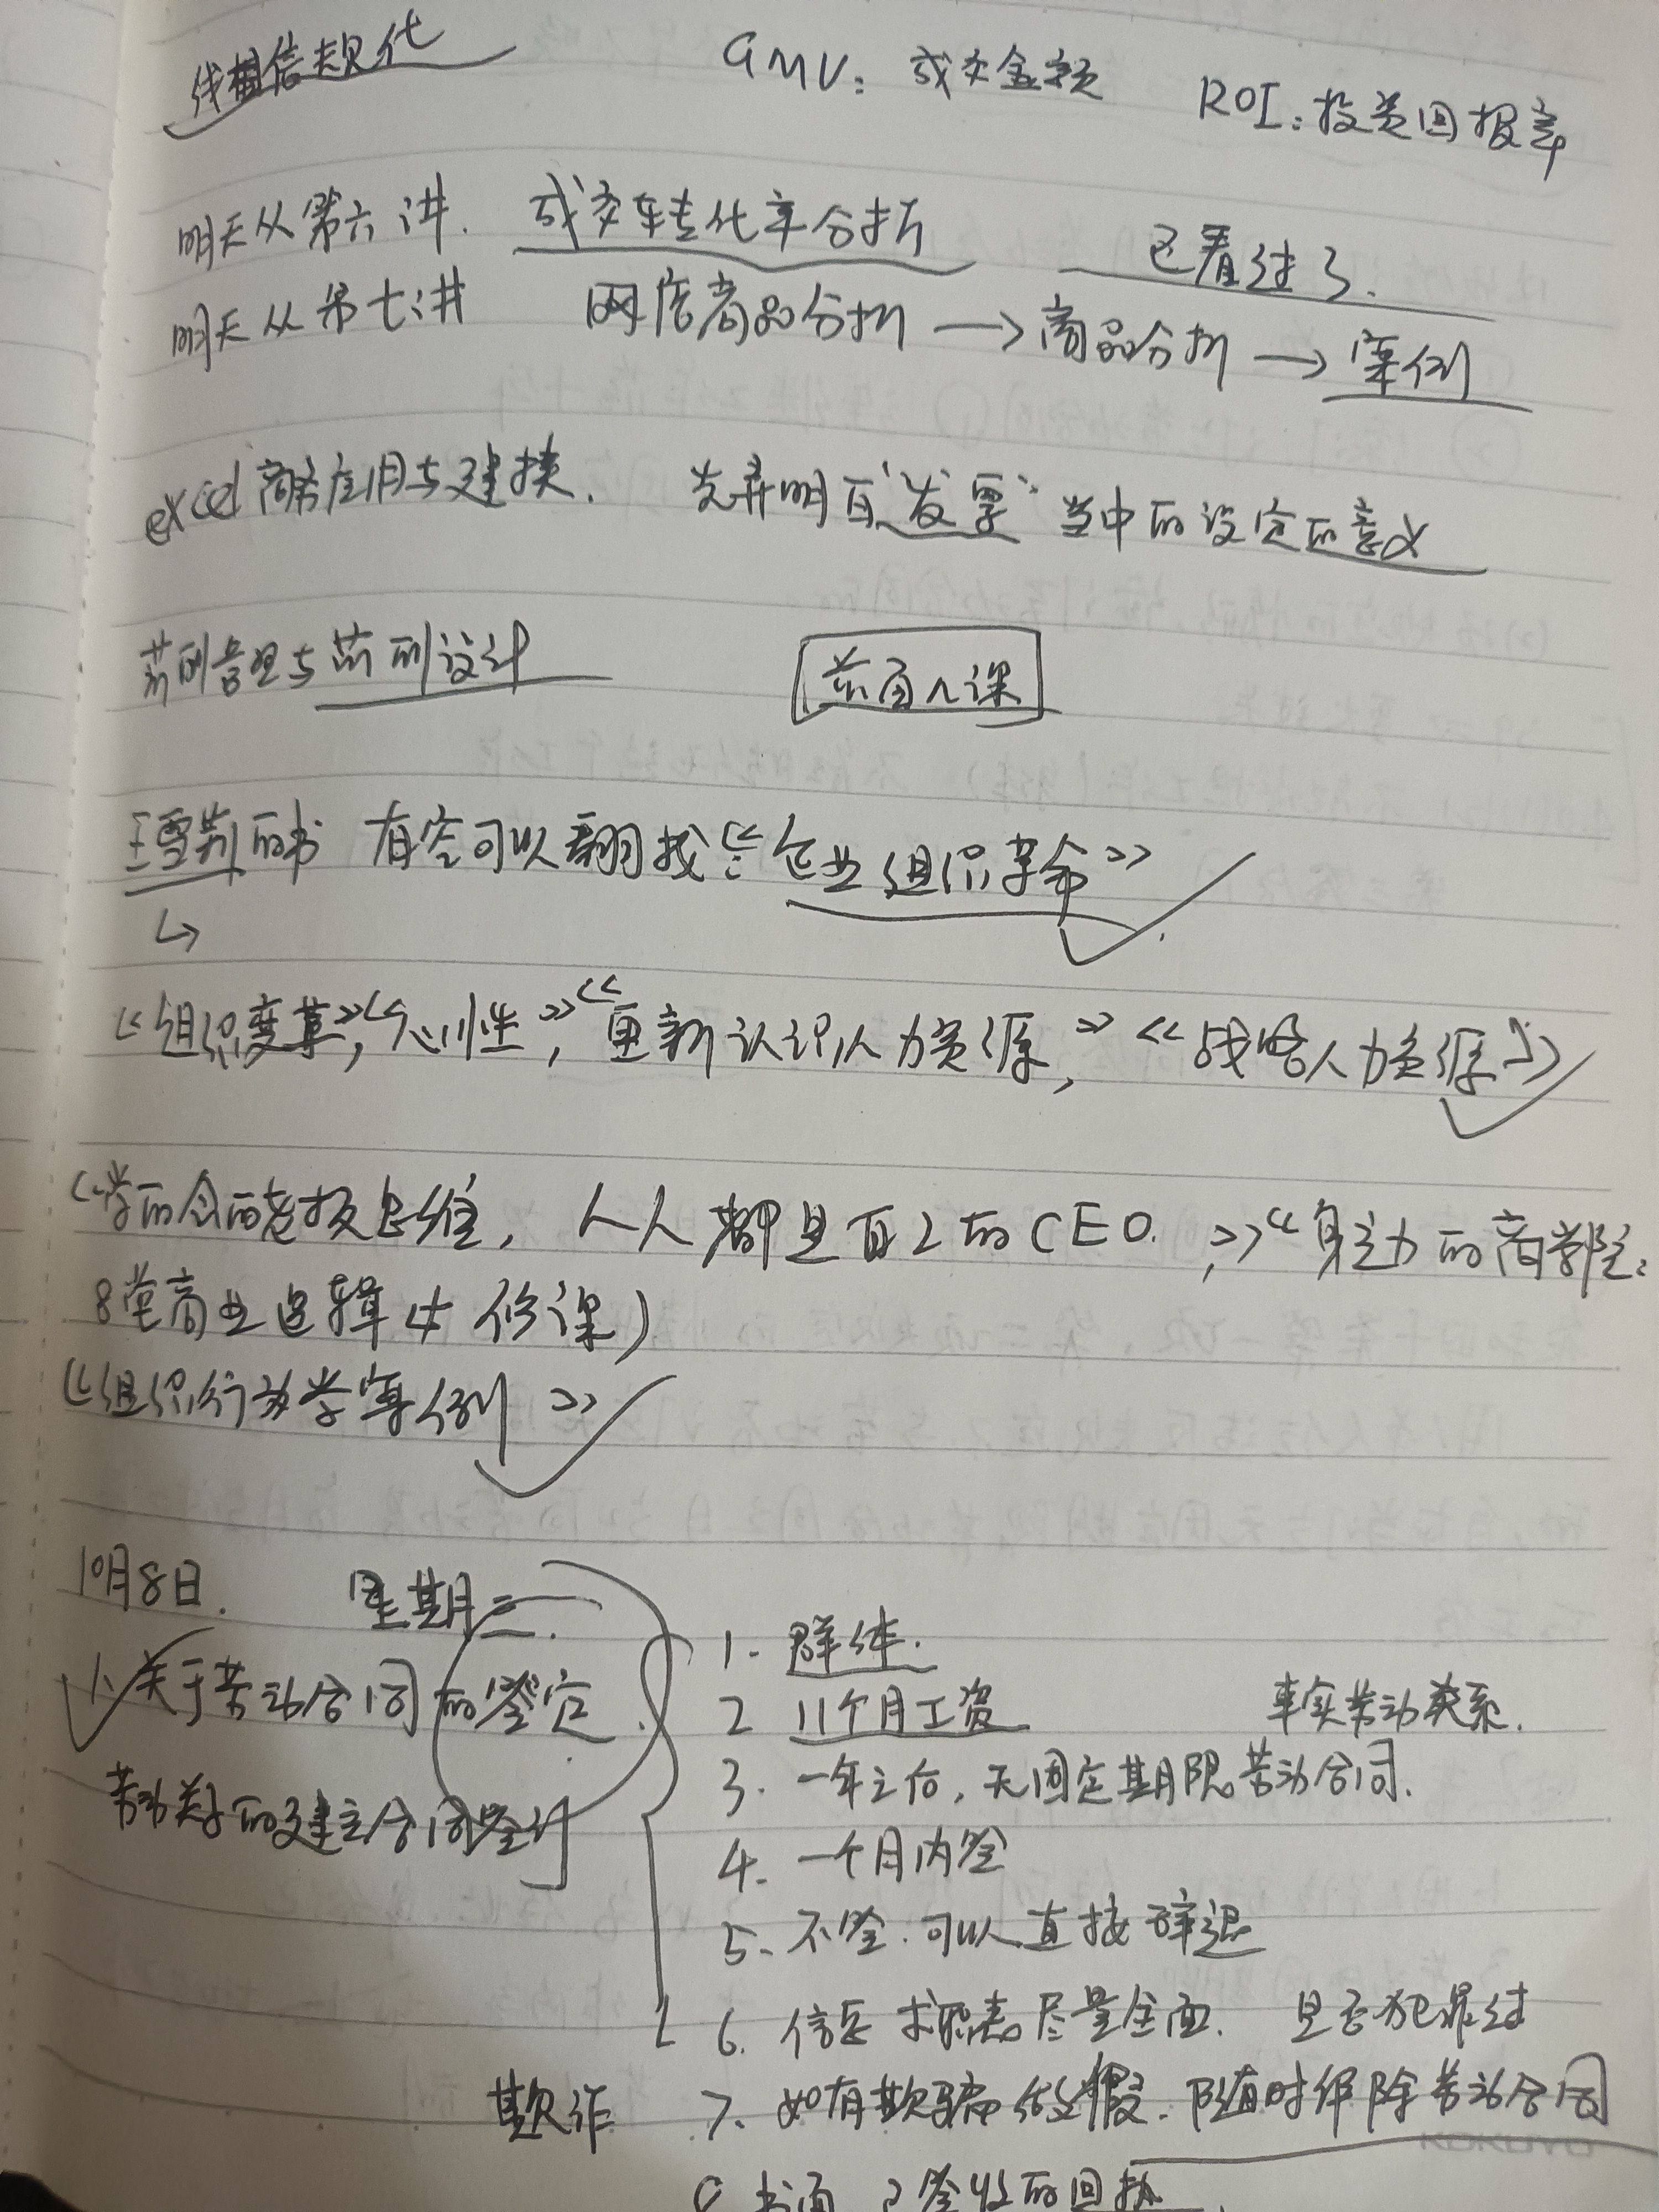 GMV：成交金额
ROI：投资回报率
明天从第六讲. 成交转化率分析 已看过了.
明天从第七讲 网店商品分析 → 商品分析 → 案例
excel 商务应用与建模. 先弄明白"发票"当中的设定的意义
薪酬管理与薪酬设计 前面几课
王雪莉的书 有空可以翻找：《企业组织革命》
↳
《组织变革》,《心性》,《重新认识人力资源,》《战略人力资源》
《学的会的老板思维, 人人都是自己的CEO.,》《身边的商学院:
8堂商业逻辑 修课)
《组织行为学案例》
10月8日. 星期三.
1. 关于劳动合同的签定.
劳动关系的建立合同签订
1. 群体.
2 11个月工资 事实劳动关系.
3. 一年之后, 无固定期限劳动合同.
4. 一个月内签
5. 不签.可以直接辞退
6. 信函 求职表尽量全面. 是否犯罪过
欺诈 7. 如有欺骗做假. 随时解除劳动合同
书面 签收的回执
KOKUYO